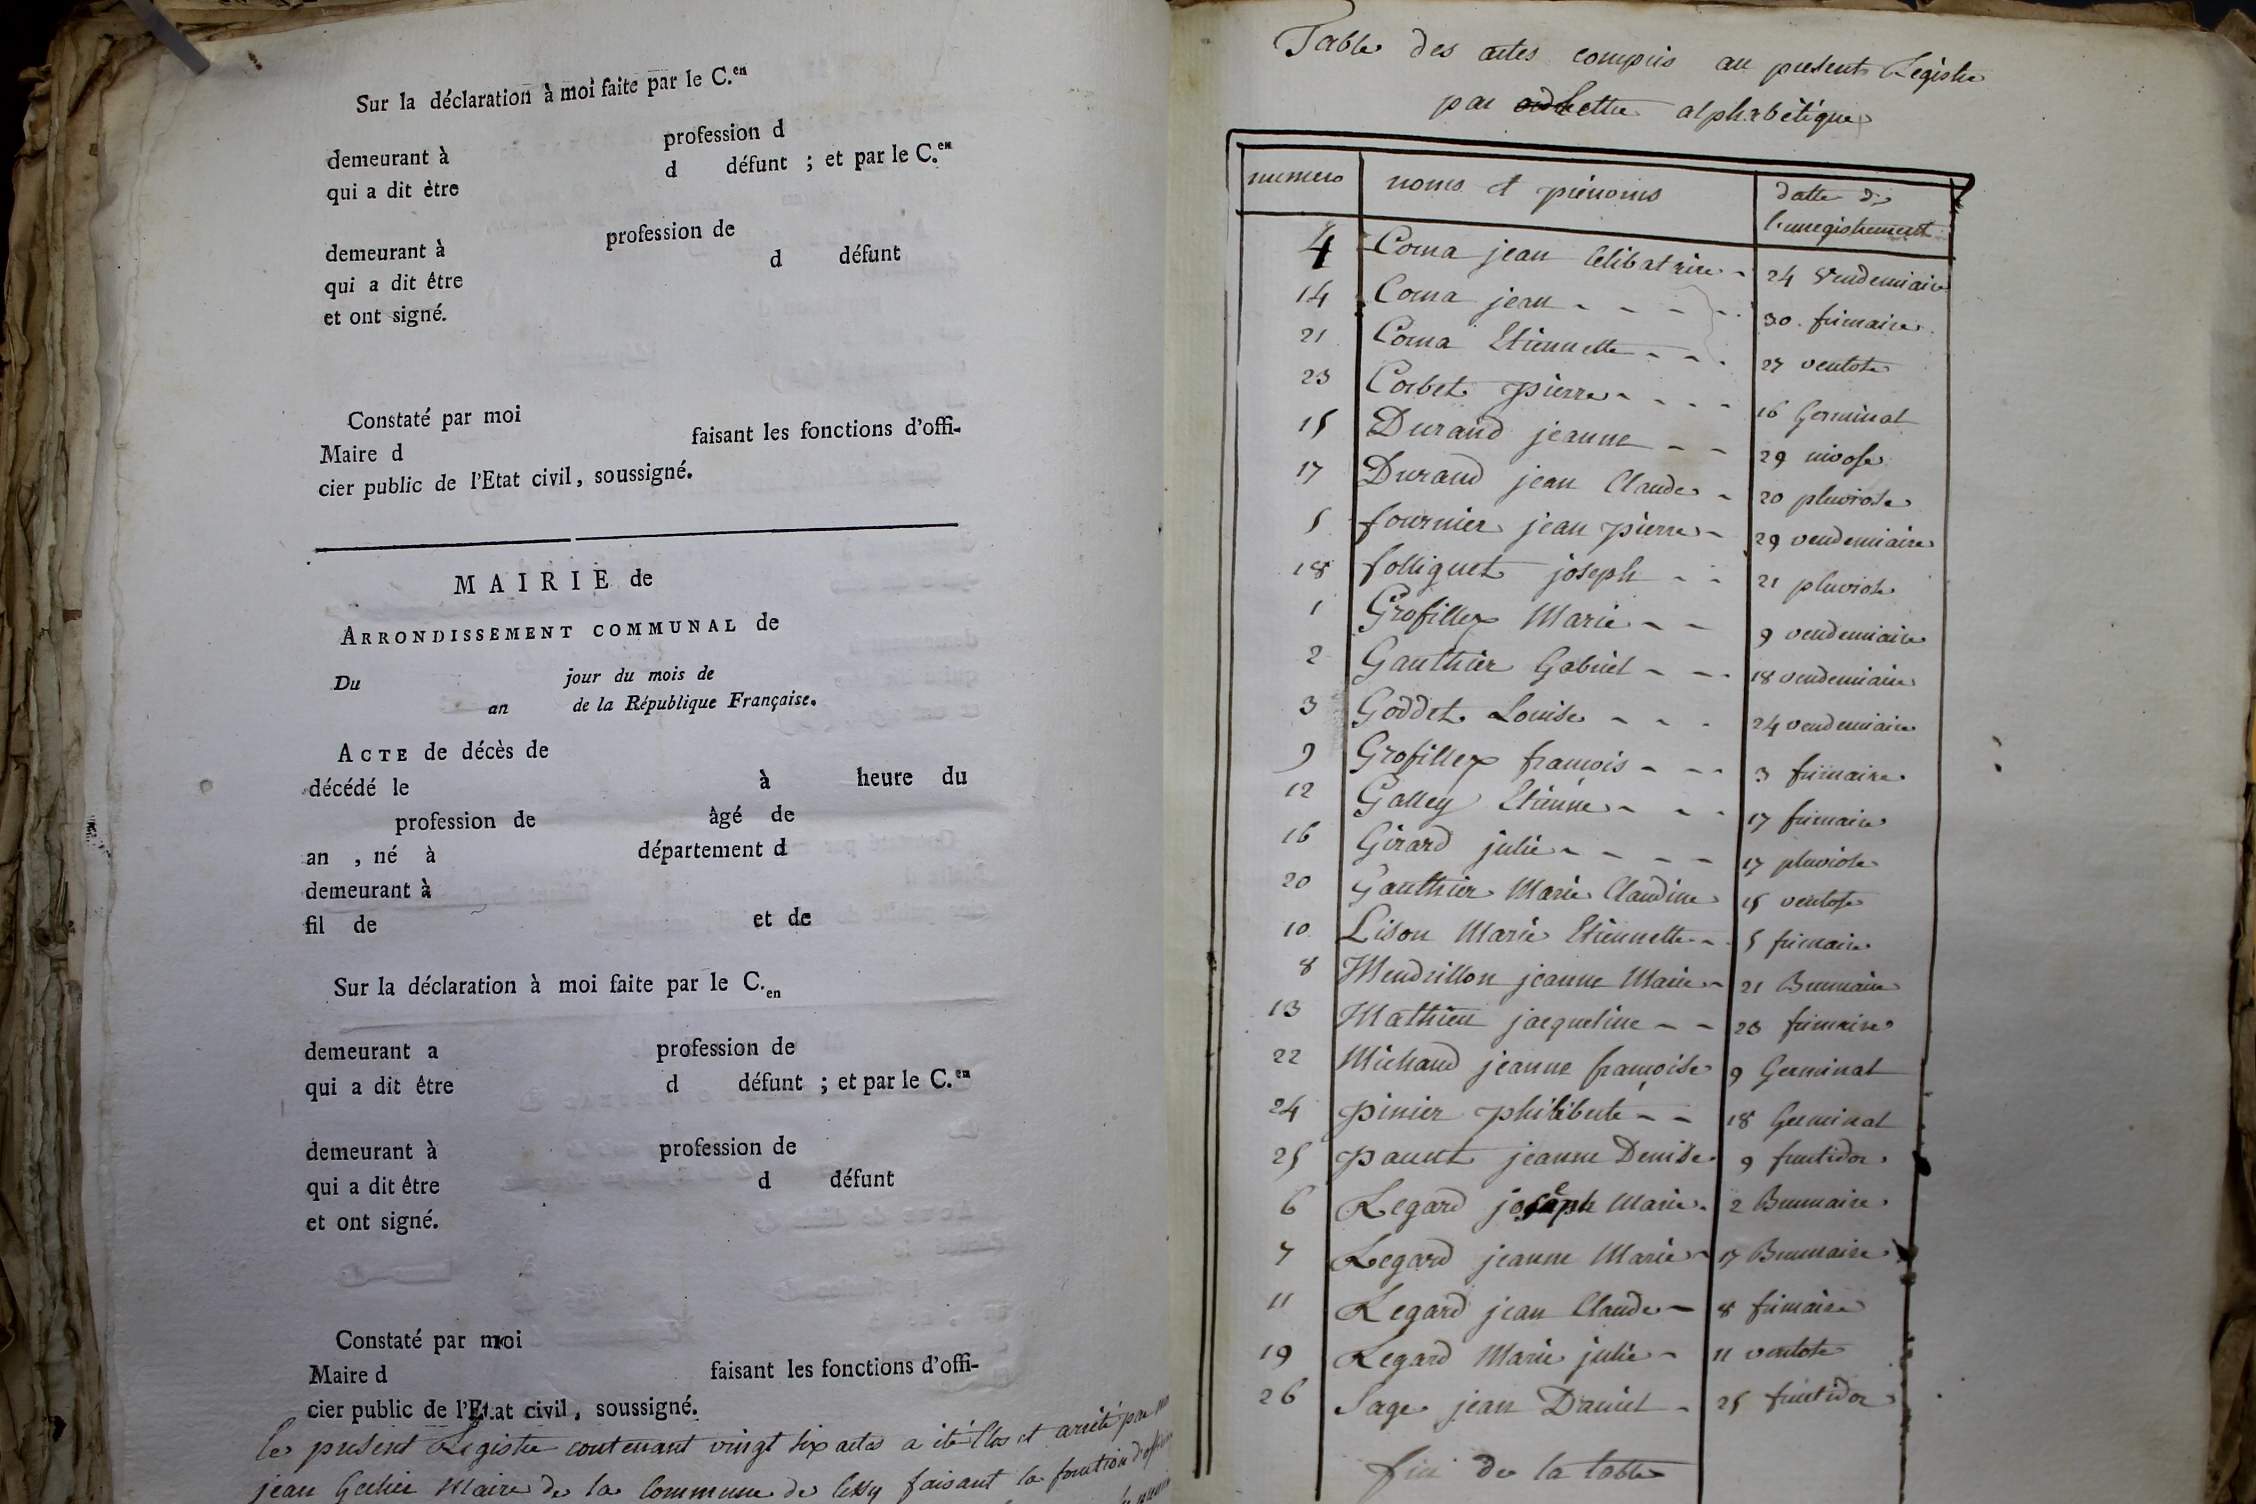 Sur la déclaration à moi faite par le C.en
profession d
demeurant à
d défunt ; et par le C.en
qui a dit ètre
profession de
demeurant à
d défunt
qui a dit être
et ont signé.
Constaté par moi
Maire d faisant les fonctions d'offi-
cier public de l'Etat civil, soussigné.
MAIRIE de
ARRONDISSEMENT COMMUNAL de
Du jour du mois de
an de la République Française.
ACTE de décès de
décédé le à heure du
profession de âgé de
an , né à département d
demeurant à
fil de et de
Sur la déclaration à moi faite par le C.en
demeurant a profession de
qui a dit être d défunt ; et par le C.en
demeurant à profession de
qui a dit être d défunt
et ont signé.
Constaté par moi
Maire d faisant les fonctions d'offi-
cier public de l'Etat civil, soussigné.
le present Registre contenant vingt six actes a été Clos et arrêté par
jean Maire de la Commune de faisant la fonction
Table des actes compris au present Registre
par lettre alphabétique
numero noms et prénoms datte de l'enregistrement
4 Corna jean Celibataire 24 vendemiaire
14 Corna jean 30 frimaire
21 Corna Etiennette 27 ventose
23 Corbet pierre 16 Germinal
15 Durand jeanne 29 nivose
17 Durand jean Claude 20 pluviose
5 fournier jean pierre 29 vendemiaire
18 folliguet joseph 21 pluviose
1 Grofillex Marie 9 vendemiaire
2 Gauthier Gabriel 18 vendemiaire
3 Goddet Louise 24 vendemiaire
9 Grofillex francois 3 frimaire
12 Galley Etienne 17 frimaire
16 Girard julie 17 pluviose
20 Gauthier Marie Claudine 15 ventose
10 Lison Marie Etiennette 5 frimaire
8 Mendrillon jeanne Marie 21 Brumaire
13 Mathieu jacqueline 23 frimaire
22 Michaud jeanne françoise 9 Germinal
24 pinier philiberte 18 Germinal
25 jeanne Denise 9 fructidor
6 Regard joseph Marie 2 Brumaire
7 Regard jeanne Marie 17 Brumaire
11 Regard jean Claude 8 frimaire
19 Regard Marie julie 11 ventose
26 Sage jean Daniel 25 fructidor
fin de la table